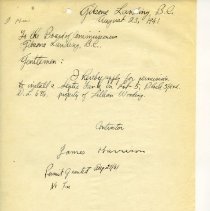 Gibsons Landing, B.C.
August 23, 1961
To the Board of Commissioners
Gibsons Landing, B.C.
Gentlemen:
I hereby apply for permission
to install a septic tank on Lot 5, Block
D.L. 686, property of Lillian Wooding.
Contractor
James Harrison
Permit Granted Aug 24/61